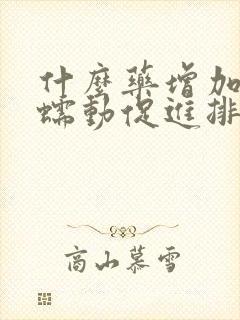 什麼藥增加
蠕動促進排
高山慕雪